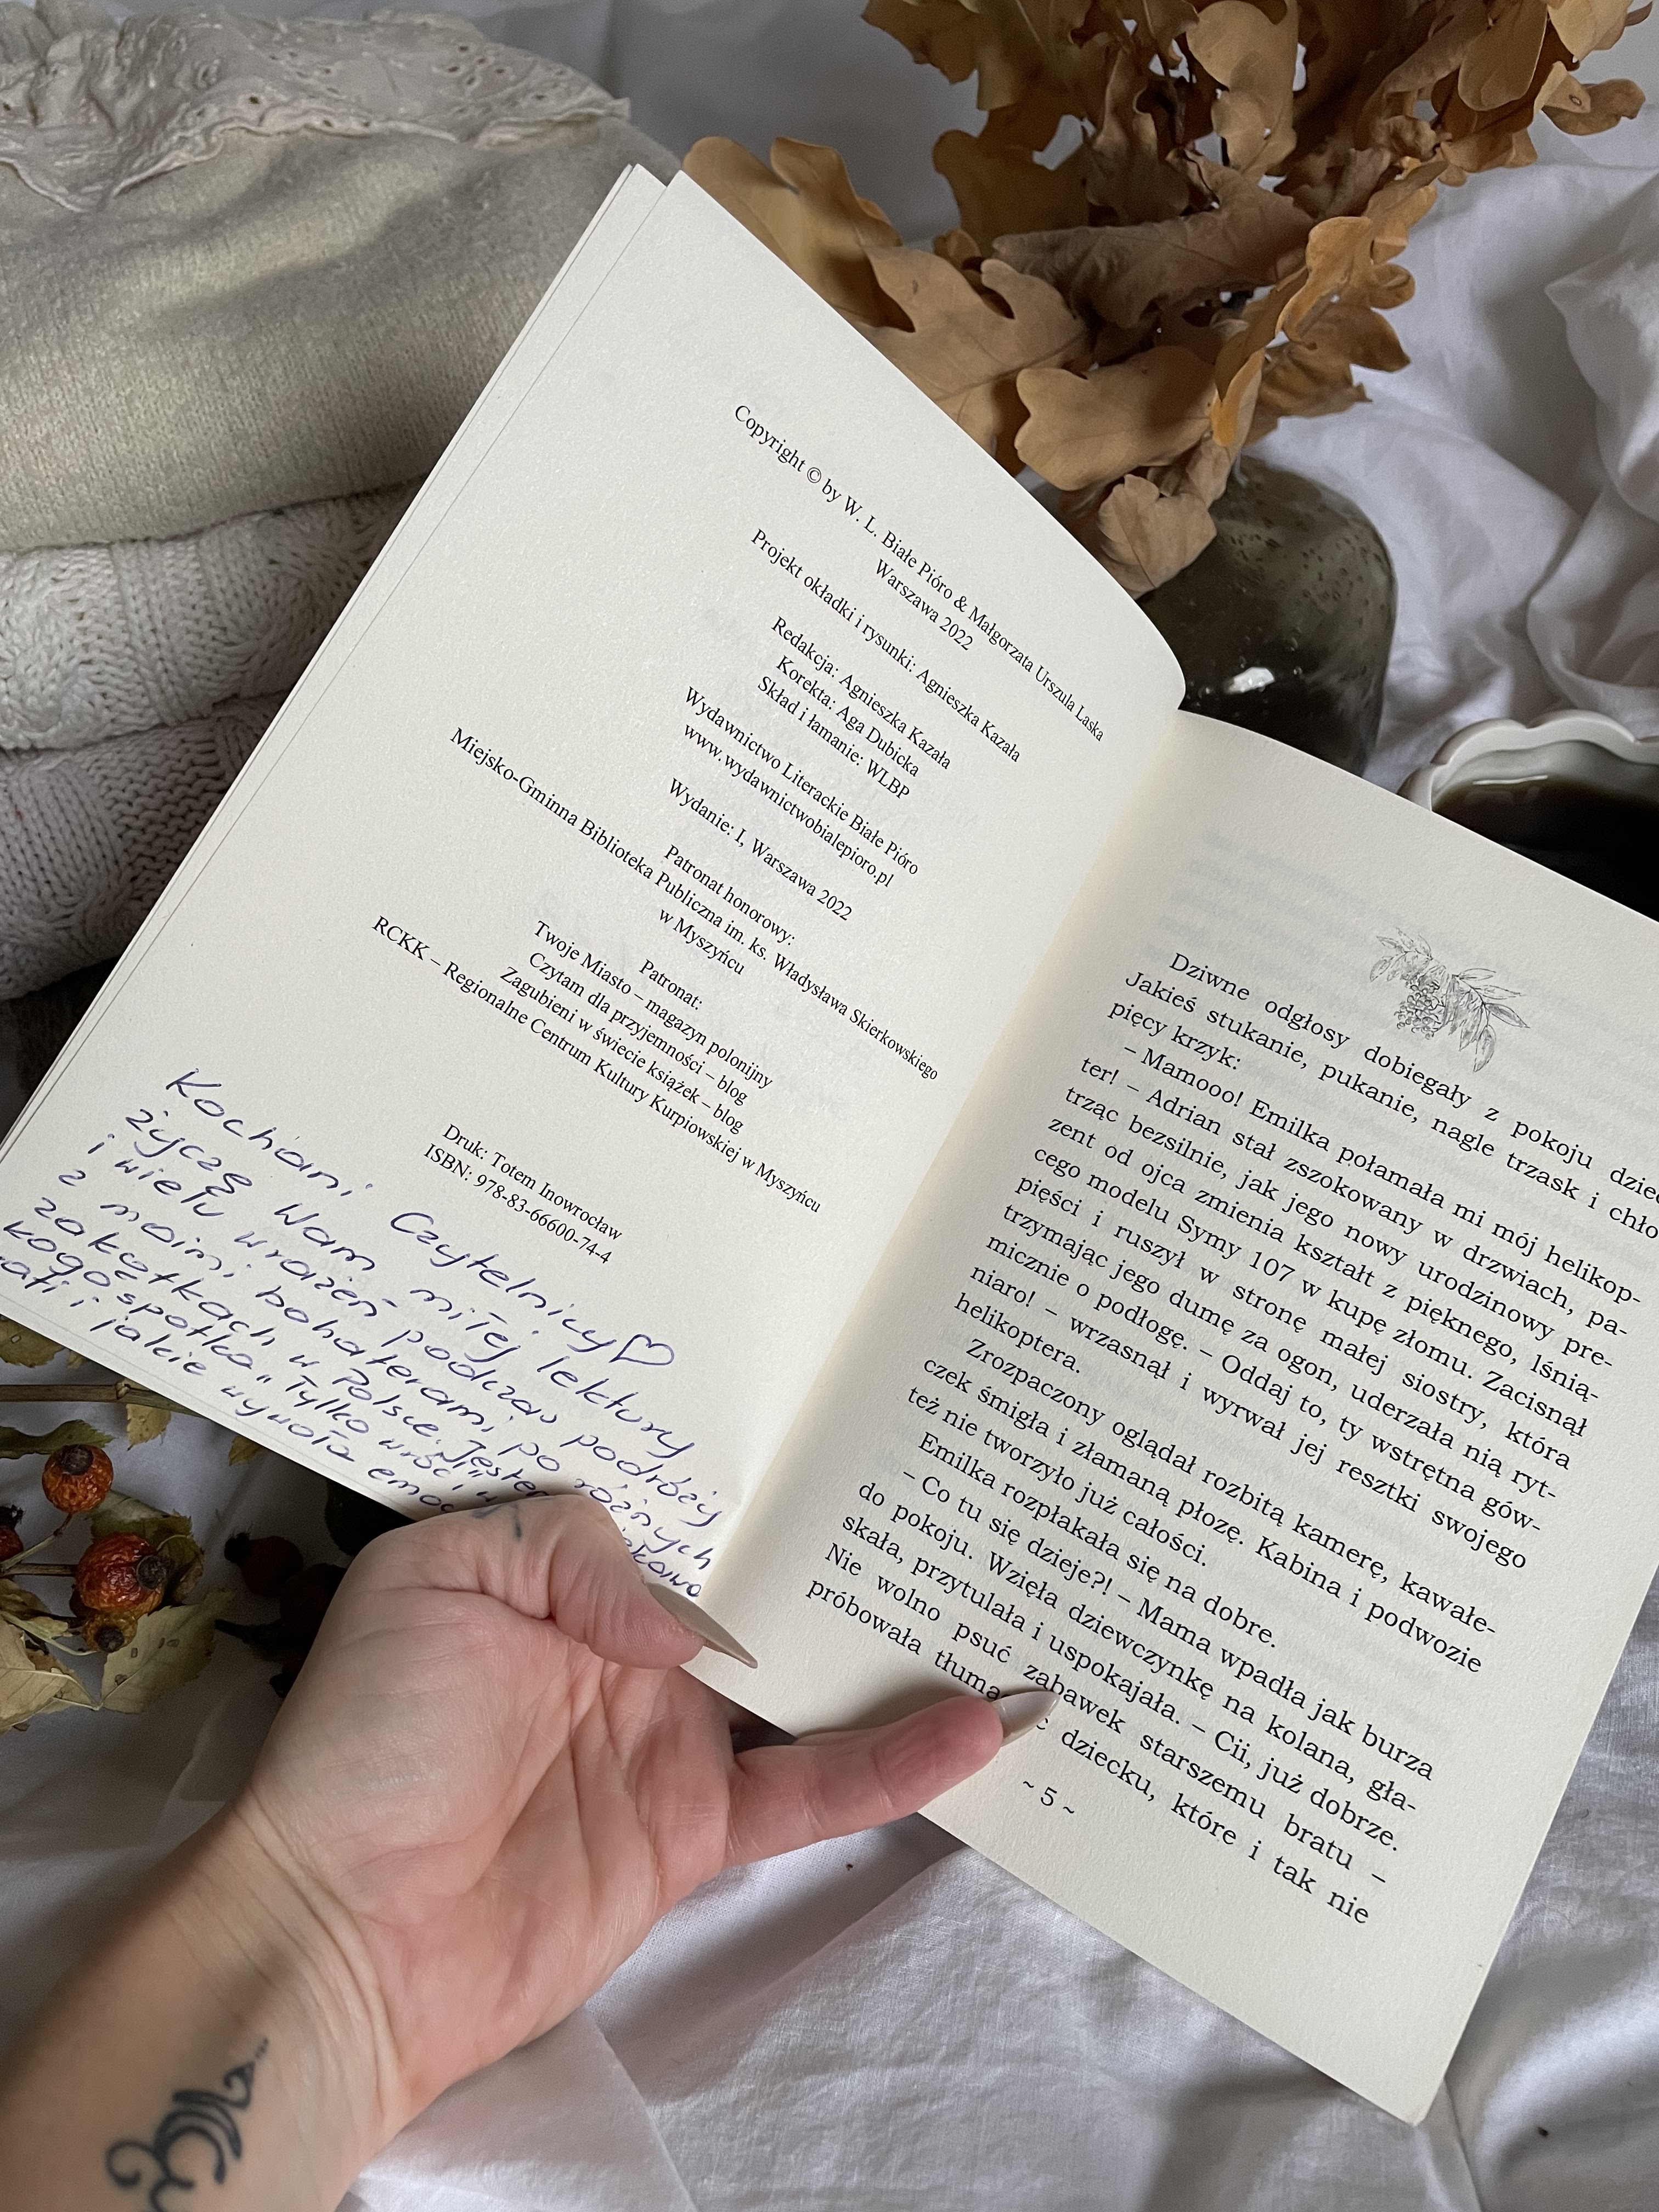 Copyright © by W. L. Białe Pióro & Małgorzata Urszula Laska
Warszawa 2022
Projekt okładki i rysunki: Agnieszka Kazała
Redakcja: Agnieszka Kazała
Korekta: Aga Dubicka
Skład i łamanie: WLBP
Wydawnictwo Literackie Białe Pióro
www.wydawnictwobialepioro.pl
Wydanie: I, Warszawa 2022
Patronat honorowy:
Miejsko-Gminna Biblioteka Publiczna im. ks. Władysława Skierkowskiego
w Myszyńcu
Patronat:
Twoje Miasto – magazyn polonijny
Czytam dla przyjemności – blog
Zagubieni w świecie książek – blog
RCKK – Regionalne Centrum Kultury Kurpiowskiej w Myszyńcu
Druk: Totem Inowrocław
ISBN: 978-83-66600-74-4
Kochani Czytelnicy♡
życzę Wam miłej lektury
i wielu wrażeń podczas podróży
z moimi bohaterami po różnych
zakątkach w Polsce.
kogo spotka "Tylko wróć"
i jakie wywoła
Dziwne odgłosy dobiegały z pokoju
Jakieś stukanie, pukanie, nagle trzask i
pięcy krzyk:
– Mamooo! Emilka połamała mi mój helikop-
ter! – Adrian stał zszokowany w drzwiach, pa-
trząc bezsilnie, jak jego nowy urodzinowy pre-
zent od ojca zmienia kształt z pięknego, lśnią-
cego modelu Symy 107 w kupę złomu. Zacisnął
pięści i ruszył w stronę małej siostry, która
trzymając jego dumę za ogon, uderzała nią ryt-
micznie o podłogę. – Oddaj to, ty wstrętna gów-
niaro! – wrzasnął i wyrwał jej resztki swojego
helikoptera.
Zrozpaczony oglądał rozbitą kamerę, kawałe-
czek śmigła i złamaną płozę. Kabina i podwozie
też nie tworzyło już całości.
Emilka rozpłakała się na dobre.
– Co tu się dzieje?! – Mama wpadła jak burza
do pokoju. Wzięła dziewczynkę na kolana, gła-
skała, przytulała i uspokajała. – Cii, już dobrze.
Nie wolno psuć zabawek starszemu bratu –
próbowała dziecku, które i tak nie
~ 5 ~